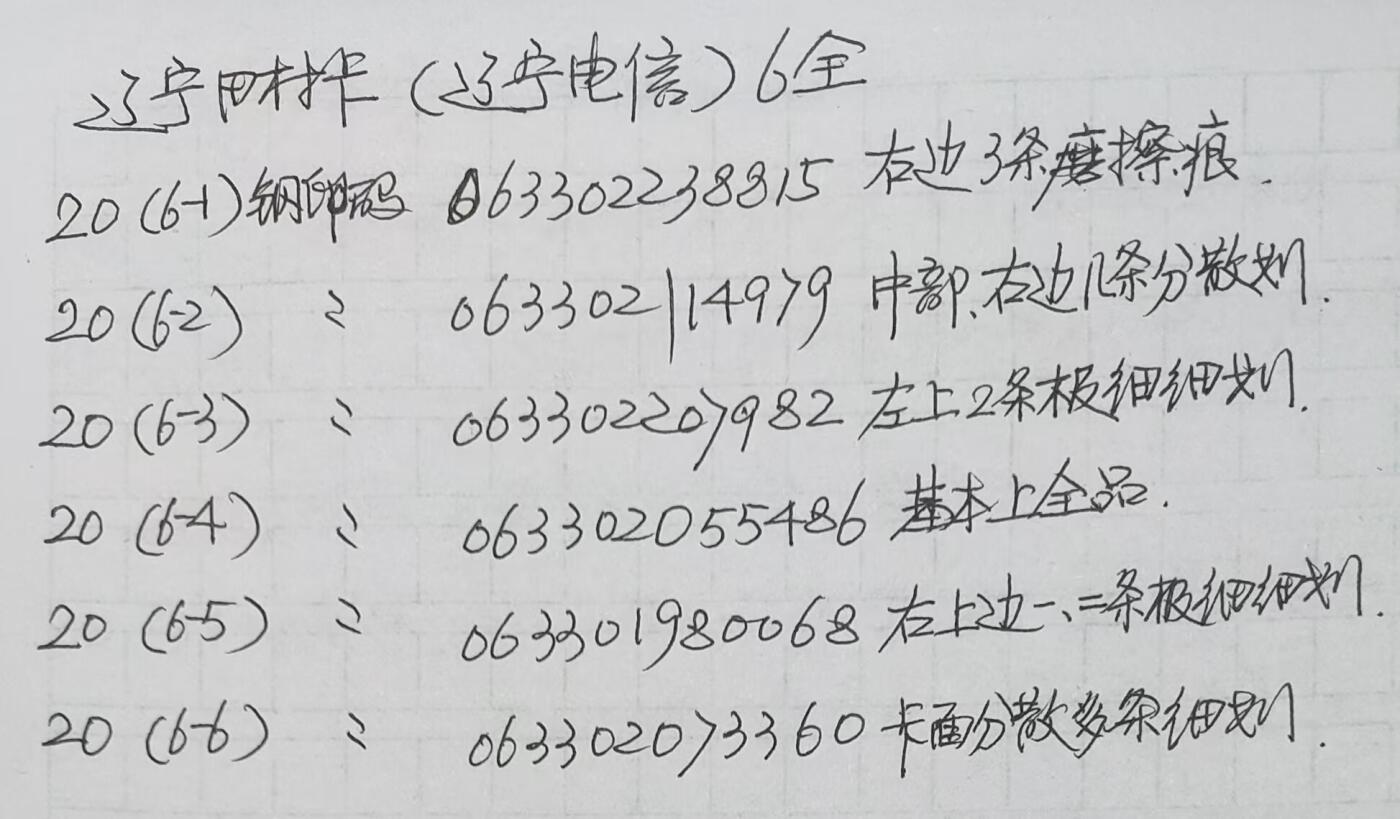 辽宁田村卡(辽宁电信)6全
20(6-1)钢印码 063302238815 右边3条磨擦痕.
20(6-2) 〻 063302114979 中部、右边几条分散划.
20(6-3) 〻 063302207982 左上2条极细细划.
20(6-4) 〻 063302055486 基本上全品.
20(6-5) 〻 063301980068 右上边一、二条极细细划.
20(6-6) 〻 063302073360 卡面分散多条细划.